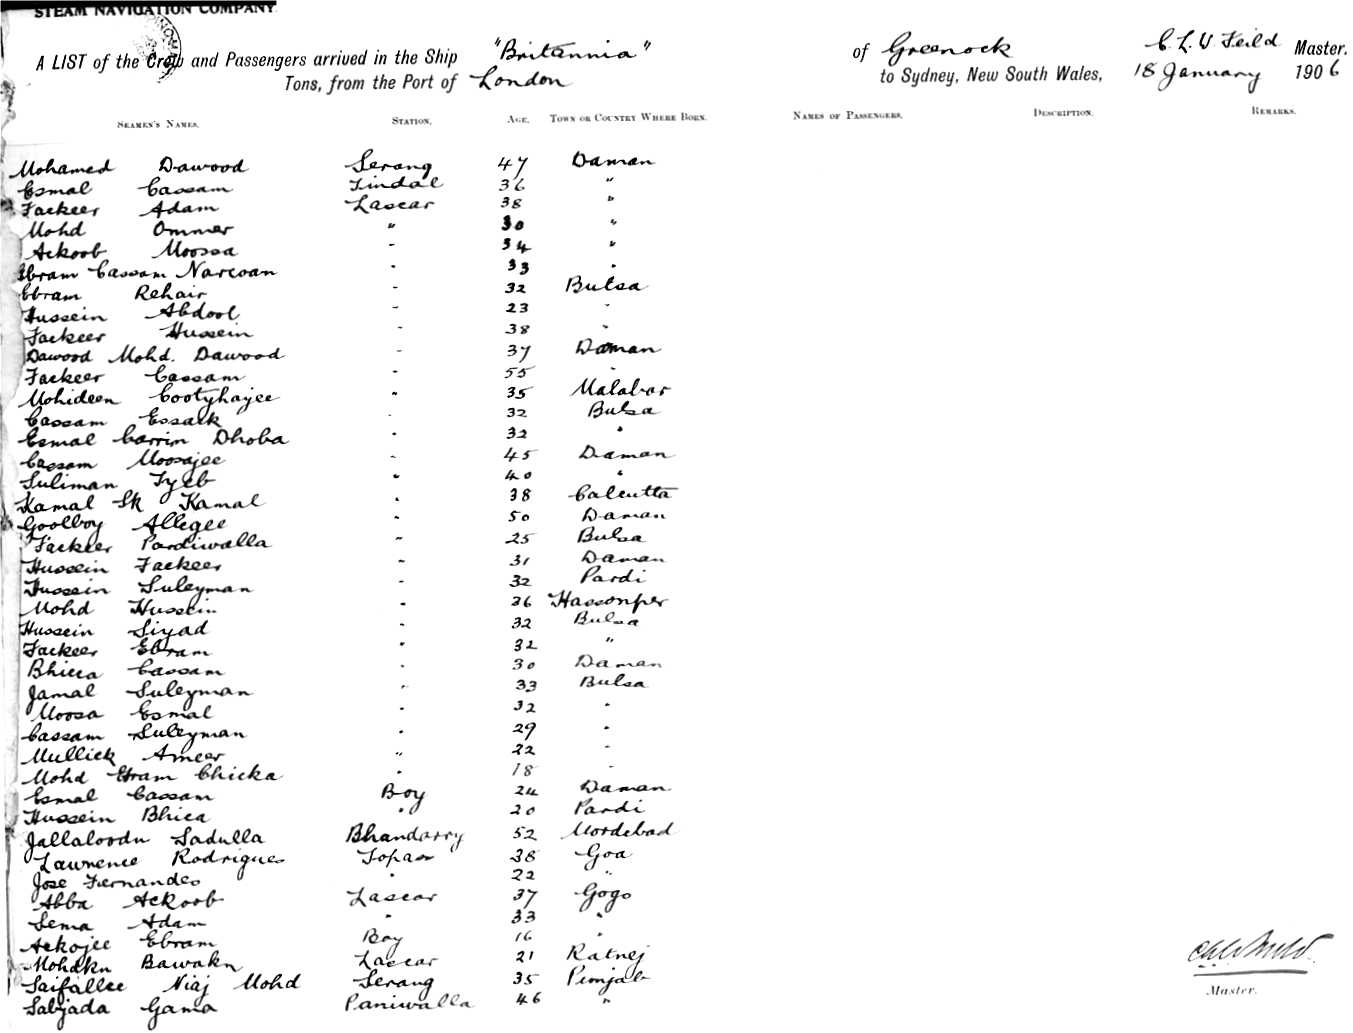 STEAM NAVIGATION COMPANY
A LIST of the Crew and Passengers arrived in the Ship "Britannia" of Greenock C. L. V Feild Master.
Tons, from the Port of London to Sydney, New South Wales, 18 January 1906
SEAMEN'S NAMES. STATION. AGE. TOWN OR COUNTRY WHERE BORN. NAMES OF PASSENGERS. DESCRIPTION. REMARKS.
Mohamed Dawood Serang 47 Daman
Esmal Cassam Tindal 36 "
Fackeer Adam Lascar 38 "
Mohd Ommer " 30 "
Ackoob Moossa " 34 "
Ebram Cassam Narcoan " 33 "
Ebram Rehair " 32 Bulsa
Hussein Abdool " 23 "
Fackeer Hussein " 38 "
Dawood Mohd. Dawood " 37 Daman
Fackeer Cassam " 55 "
Mohideen Cootyhajee " 35 Malabar
Cassam Essack " 32 Bulsa
Esmal Carrim Dhoba " 32 "
Cassam Moosajee " 45 Daman
Suliman Tyeb " 40 "
Kamal Sk Kamal " 38 Calcutta
Goolboy Allegee " 50 Daman
Fackeer Pardiwalla " 25 Bulsa
Hussein Fackeer " 31 Daman
Hussein Suleyman " 32 Pardi
Mohd Hussein " 36 Hassonper
Hussein Siyad " 32 Bulsa
Fackeer Ebram " 32 "
Bhicca Cassam " 30 Daman
Jamal Suleyman " 33 Bulsa
Moosa Esmal " 32 "
Cassam Suleyman " 29 "
Mullick Ameer " 22 "
Mohd Ebram Chicka " 18 "
Esmal Cassam Boy 24 Daman
Hussein Bhica " 20 Pardi
Jallaloodn Sadulla Bhandarry 52 Mordebad
Lawrence Rodrigues Topass 38 Goa
Jose Fernandes " 22 "
Abba Ackoob Lascar 37 Gogo
Sema Adam " 33 "
Ackojee Ebram Boy 16 "
Mohdkn Bawakn Lascar 21 Ratnej
Saifallee Niaj Mohd Serang 35 Punjab
Sabjada Gama Paniwalla 46 "
Master.